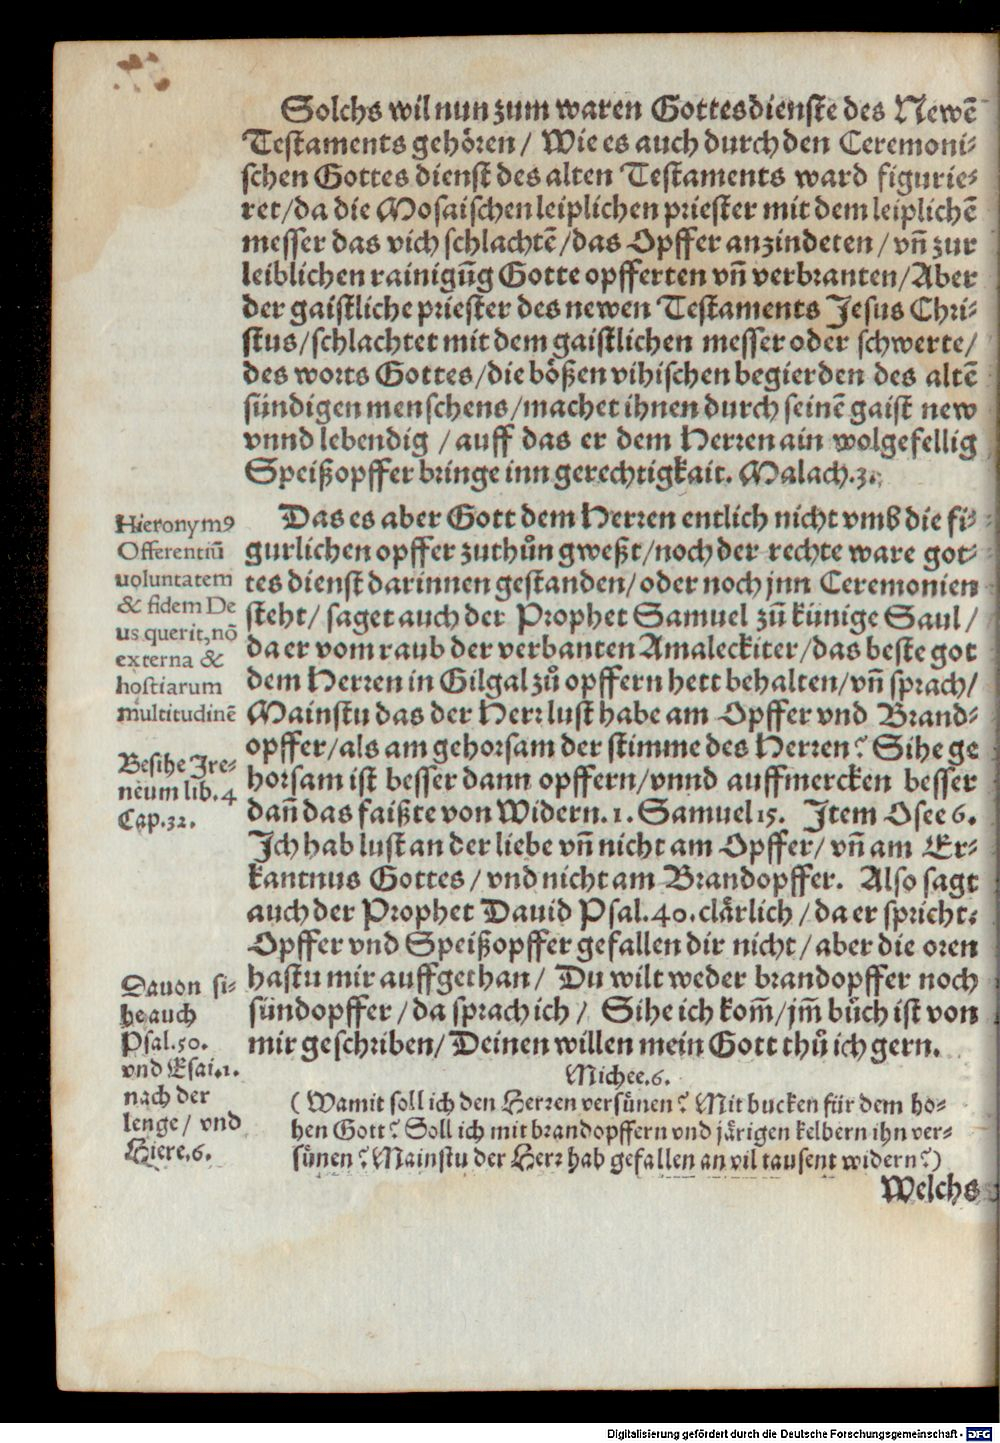 Solchs wil nun zum waren Gottesdienste des Newē
Testaments gehören / Wie es auch durch den Ceremoni-
schen Gottes dienst des alten Testaments ward figurie-
ret / da die Mosaischen leiplichen priester mit dem leiplichē
messer das vich schlachtē / das Opffer anzindeten / vñ zur
leiblichen rainigūg Gotte opfferten vñ verbranten / Aber
der gaistliche priester des newen Testaments Jesus Chri-
stus / schlachtet mit dem gaistlichen messer oder schwerte /
des worts Gottes / die bößen vihischen begierden des altē
sündigen menschens / machet ihnen durch seinē gaist new
vnnd lebendig / auff das er dem Herren ain wolgefellig
Speißopffer bringe inn gerechtigkait. Malach.3.
Das es aber Gott dem Herren entlich nicht vmb die fi-
gurlichen opffer zuthůn gweßt / noch der rechte ware got-
tes dienst darinnen gestanden / oder noch jnn Ceremonien
steht / saget auch der Prophet Samuel zū künige Saul /
da er vom raub der verbanten Amaleckiter / das beste got
dem Herren in Gilgal zů opffern hett behalten / vñ sprach /
Mainstu das der Herr lust habe am Opffer vnd Brand-
opffer / als am gehorsam der stimme des Herren? Sihe ge
horsam ist besser dann opffern / vnnd auffmercken besser
dañ das faißte von Widern. 1. Samuel 15. Item Osee 6.
Ich hab lust an der liebe vñ nicht am Opffer / vñ am Er-
kantnus Gottes / vnd nicht am Brandopffer. Also sagt
auch der Prophet Dauid Psal.40. clärlich / da er spricht:
Opffer vnd Speißopffer gefallen dir nicht / aber die oren
hastu mir auffgethan / Du wilt weder brandopffer noch
sündopffer / da sprach ich / Sihe ich kom̄ / jm̄ bůch ist von
mir geschriben / Deinen willen mein Gott thů ich gern.
Michee.6.
( Wamit soll ich den Herren versünen? Mit bucken für dem ho-
hen Gott? Soll ich mit brandopffern vnd järigen kelbern ihn ver-
sünen? Mainstu der Herr hab gefallen an vil tausent widern?)
Welchs
Hieronymꝰ
Offerentiū
uoluntatem
& fidem De
us querit, nō
externa &
hostiarum
multitudinē
Besihe Ire-
neum lib.4
Cap.32.
Dauon si-
he auch
Psal.50.
vnd Esai.1.
nach der
lenge / vnd
Hiere.6.
Digitalisierung gefördert durch die Deutsche Forschungsgemeinschaft - DFG